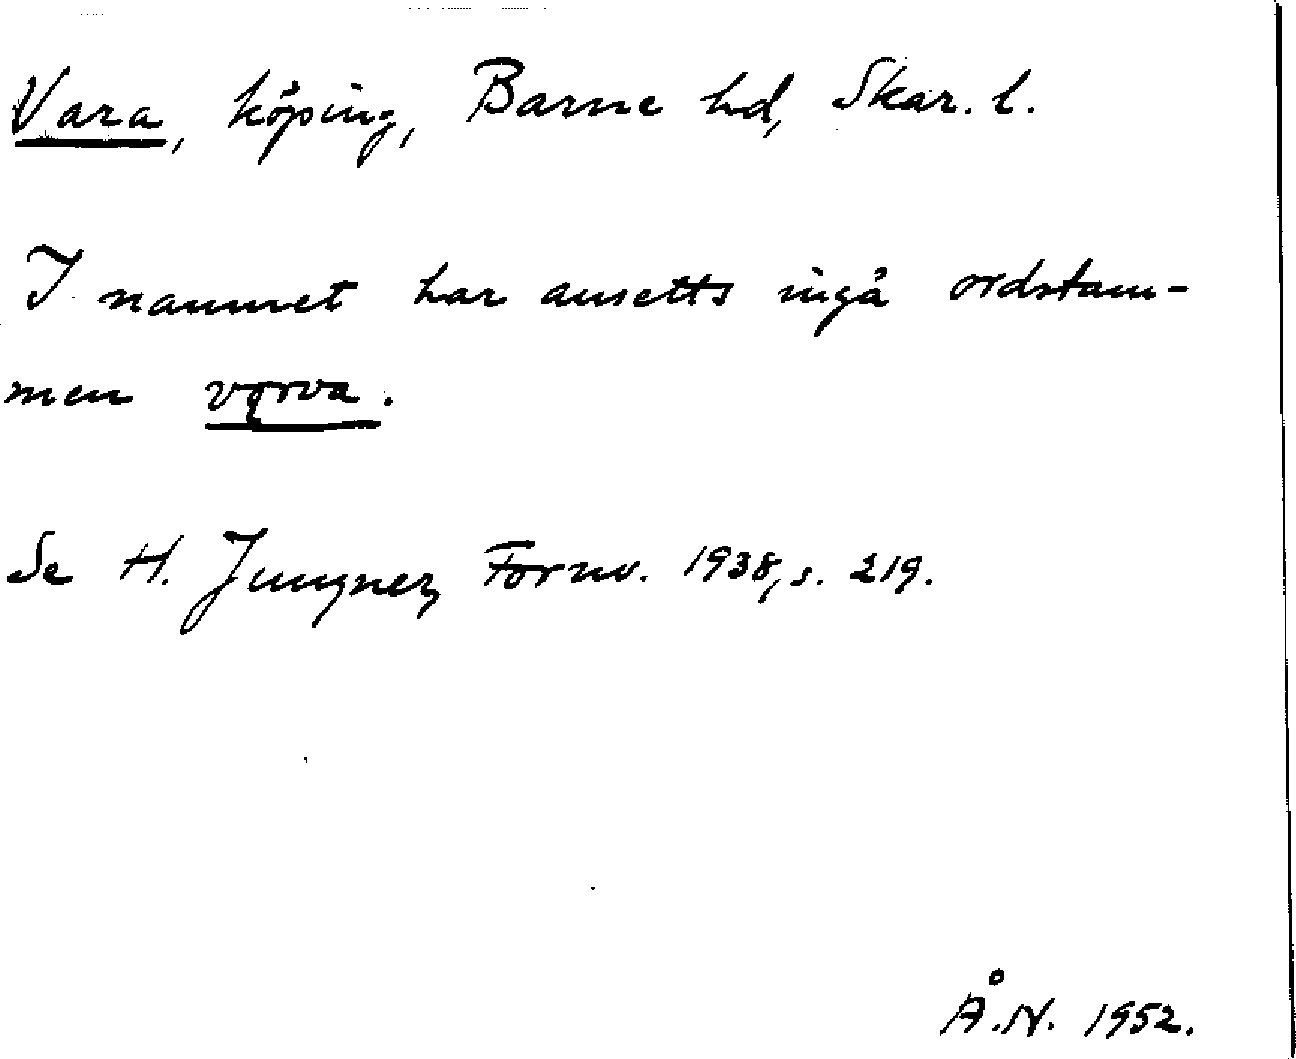 Vara, köping, Barne hd, Skar. l.
I namnet har ansetts ingå ordstam-
men vǫrva.
Se H. Jungner, Fornv. 1938, s. 219.
Å.N. 1952.